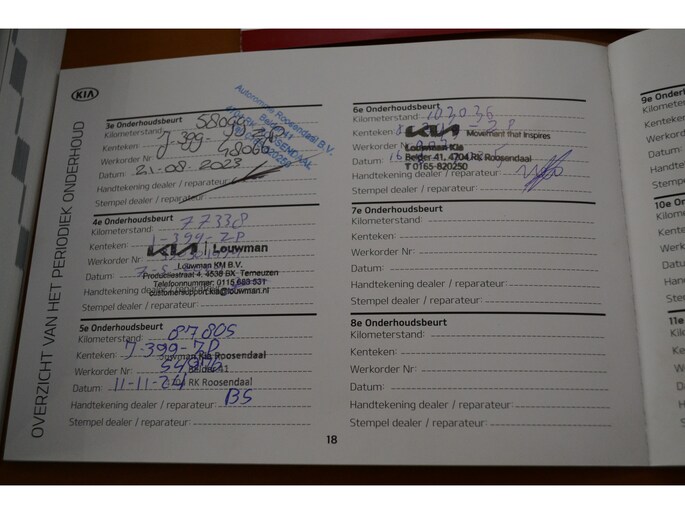 KIA
OVERZICHT VAN HET PERIODIEK ONDERHOUD
3e Onderhoudsbeurt
Kilometerstand: 58064
Kenteken: J-399-ZP
Werkorder Nr.
Datum: 21-08-2023
Handtekening dealer / reparateur:
Stempel dealer / reparateur:
Autocentrum Roosendaal B.V.
Belder 41
4e Onderhoudsbeurt
Kilometerstand: 77338
Kenteken: J-399-ZP
Werkorder Nr.
Datum:
Handtekening dealer / reparateur:
Stempel dealer / reparateur:
KIA | Louwman
Louwman KM B.V.
Productiestraat 4, 4538 BX Terneuzen
Telefoonnummer: 0115 683 531
customersupport.kia@louwman.nl
5e Onderhoudsbeurt
Kilometerstand: 87805
Kenteken: J-399-ZP
Werkorder Nr.
Datum: 11-11-24
Handtekening dealer / reparateur: BS
Stempel dealer / reparateur:
Louwman Kia Roosendaal
Belder 41
RK Roosendaal
6e Onderhoudsbeurt
Kilometerstand: 103036
Kenteken
Werkorder Nr.
Datum: 16
Handtekening dealer / reparateur:
Stempel dealer / reparateur:
KIA Movement that inspires
Louwman Kia
Belder 41, 4704 RK Roosendaal
T 0165-820250
7e Onderhoudsbeurt
Kilometerstand:
Kenteken:
Werkorder Nr.
Datum:
Handtekening dealer / reparateur:
Stempel dealer / reparateur:
8e Onderhoudsbeurt
Kilometerstand:
Kenteken:
Werkorder Nr.
Datum:
Handtekening dealer / reparateur:
Stempel dealer / reparateur:
18
9e Onder
Kilometers
Kenteken:
Werkorder
Datum:
Handteken
Stempel d
10e On
Kilomete
Kenteke
Werkor
Datum
Handt
Stem
11e
Kil